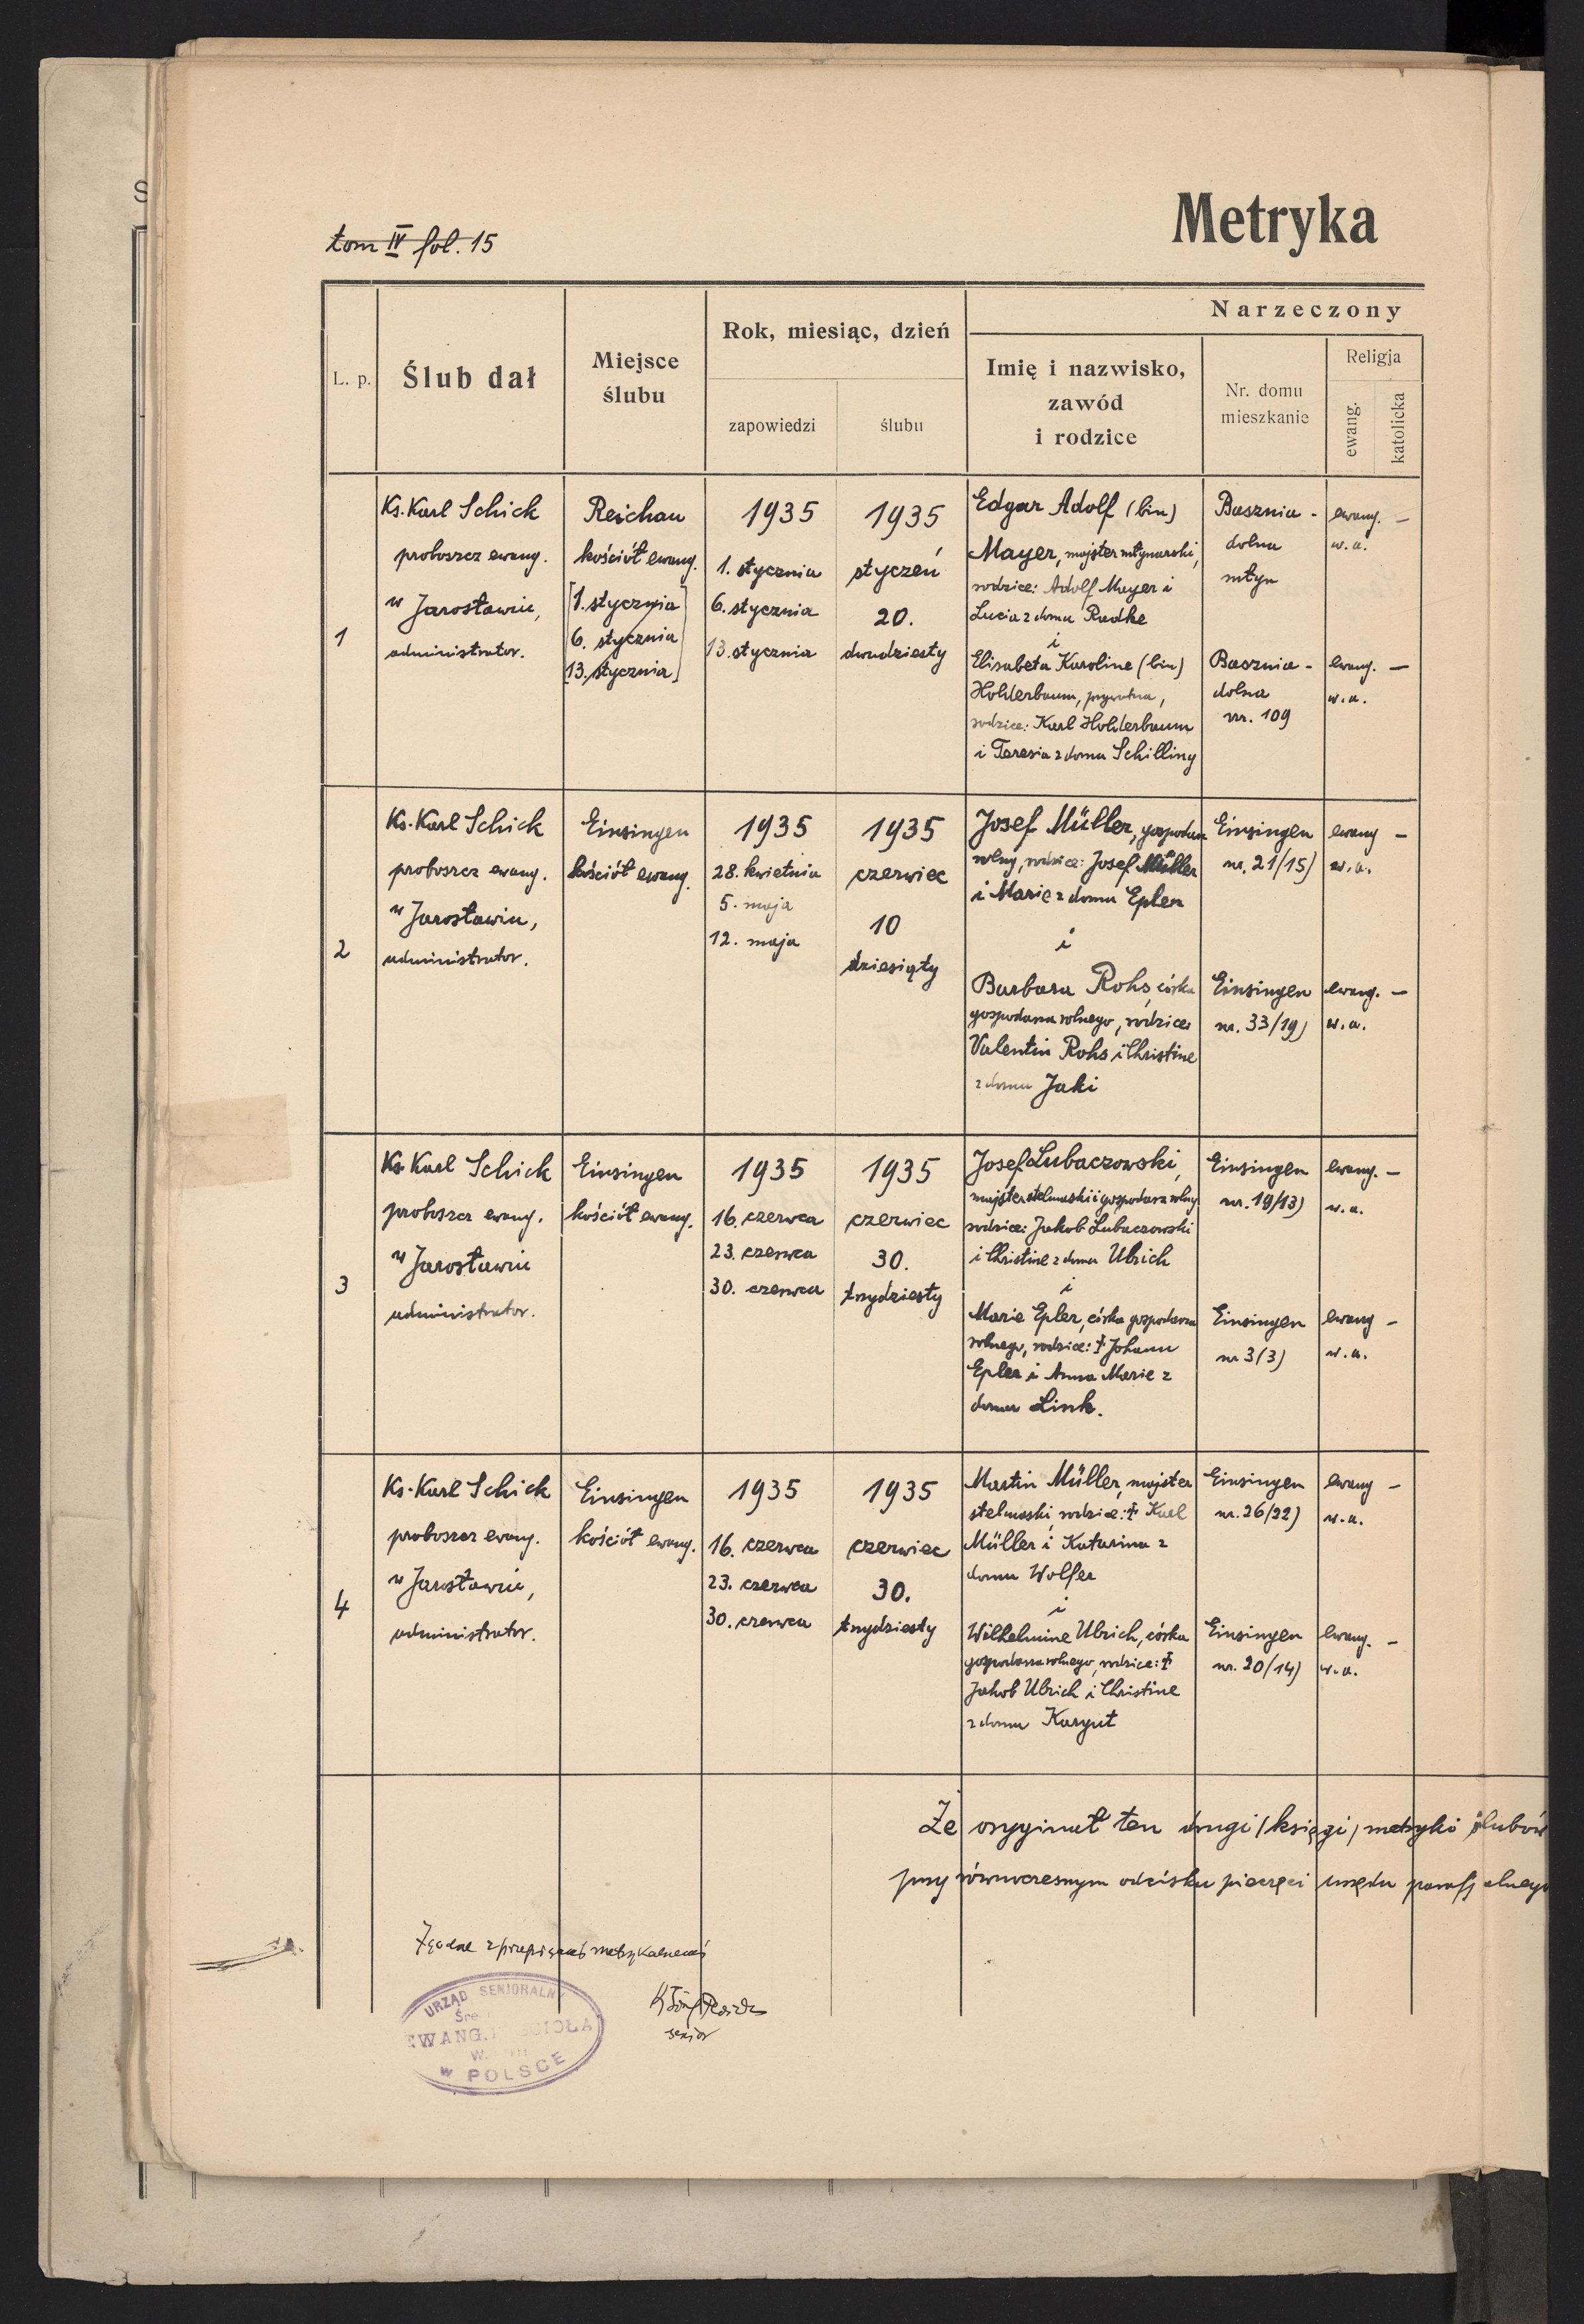 tom IV fol. 15
Metryka
L. p.
Ślub dał
Miejsce
ślubu
Rok, miesiąc, dzień
zapowiedzi
ślubu
Narzeczony
Imię i nazwisko,
zawód
i rodzice
Nr. domu
mieszkanie
Religja
ewang.
katolicka
1
Ks. Karl Schick
proboszcz ewang.
w Jarosławiu,
administrator.
Reichau
kościół ewang.
[1. stycznia
6. stycznia
13. stycznia]
1935
1. stycznia
6. stycznia
13. stycznia
1935
styczeń
20.
dwudziesty
Edgar Adolf (bin)
Mayer, majster młynarski,
rodzice: Adolf Mayer i
Lucia z domu Radke
i
Elisabeta Karoline (bin)
Holderbaum, prywatna,
rodzice: Karl Holderbaum
i Teresia z domu Schilling
Basznia -
dolna
młyn
Basznia -
dolna
nr. 109
ewang. —
w. a.
ewang. —
w. a.
2
Ks. Karl Schick
proboszcz ewang.
w Jarosławiu,
administrator.
Einsingen
kościół ewang.
1935
28. kwietnia
5. maja
12. maja
1935
czerwiec
10
dziesiąty
Josef Müller, gospodarz
rolny, rodzice: Josef Müller
i Marie z domu Epler
i
Barbara Rohs, córka
gospodarza rolnego, rodzice:
Valentin Rohs i Christine
z domu Jaki
Einsingen
nr. 21/15)
Einsingen
nr. 33/19)
ewang —
w. a.
ewang. —
w. a.
3
Ks. Karl Schick
proboszcz ewang.
w Jarosławiu
administrator.
Einsingen
kościół ewang.
1935
16. czerwca
23. czerwca
30. czerwca
1935
czerwiec
30.
trzydziesty
Josef Lubaczowski,
majster stelmaski i gospodarz rolny
rodzice: Jakob Lubaczowski
i Christine z domu Ulrich
i
Marie Epler, córka gospodarza
rolnego, rodzice: ‡ Johann
Epler i Anna Marie z
domu Link.
Einsingen
nr. 19/13)
Einsingen
nr 3/3)
ewang. —
w. a.
ewang —
w. a.
4
Ks. Karl Schick
proboszcz ewang.
w Jarosławiu,
administrator.
Einsingen
kościół ewang.
1935
16. czerwca
23. czerwca
30. czerwca
1935
czerwiec
30.
trzydziesty
Martin Müller, majster
stelmaski, rodzice: ‡ Karl
Müller i Katarina z
domu Wolfer
i
Wilhelmine Ulrich, córka
gospodarza rolnego, rodzice: ‡
Jakob Ulrich i Christine
z domu Kargut
Einsingen
nr. 26/22)
Einsingen
nr. 20/14)
ewang —
w. a.
ewang. —
w. a.
Że oryginał ten drugi /księgi/ metryki ślubów
przy równoczesnym odcisku pieczęci urzędu parafjalnego
Zgodne z przepisami metrykalnemi
senior
URZĄD SENIORALNY
EWANG. KOŚCIOŁA
W POLSCE